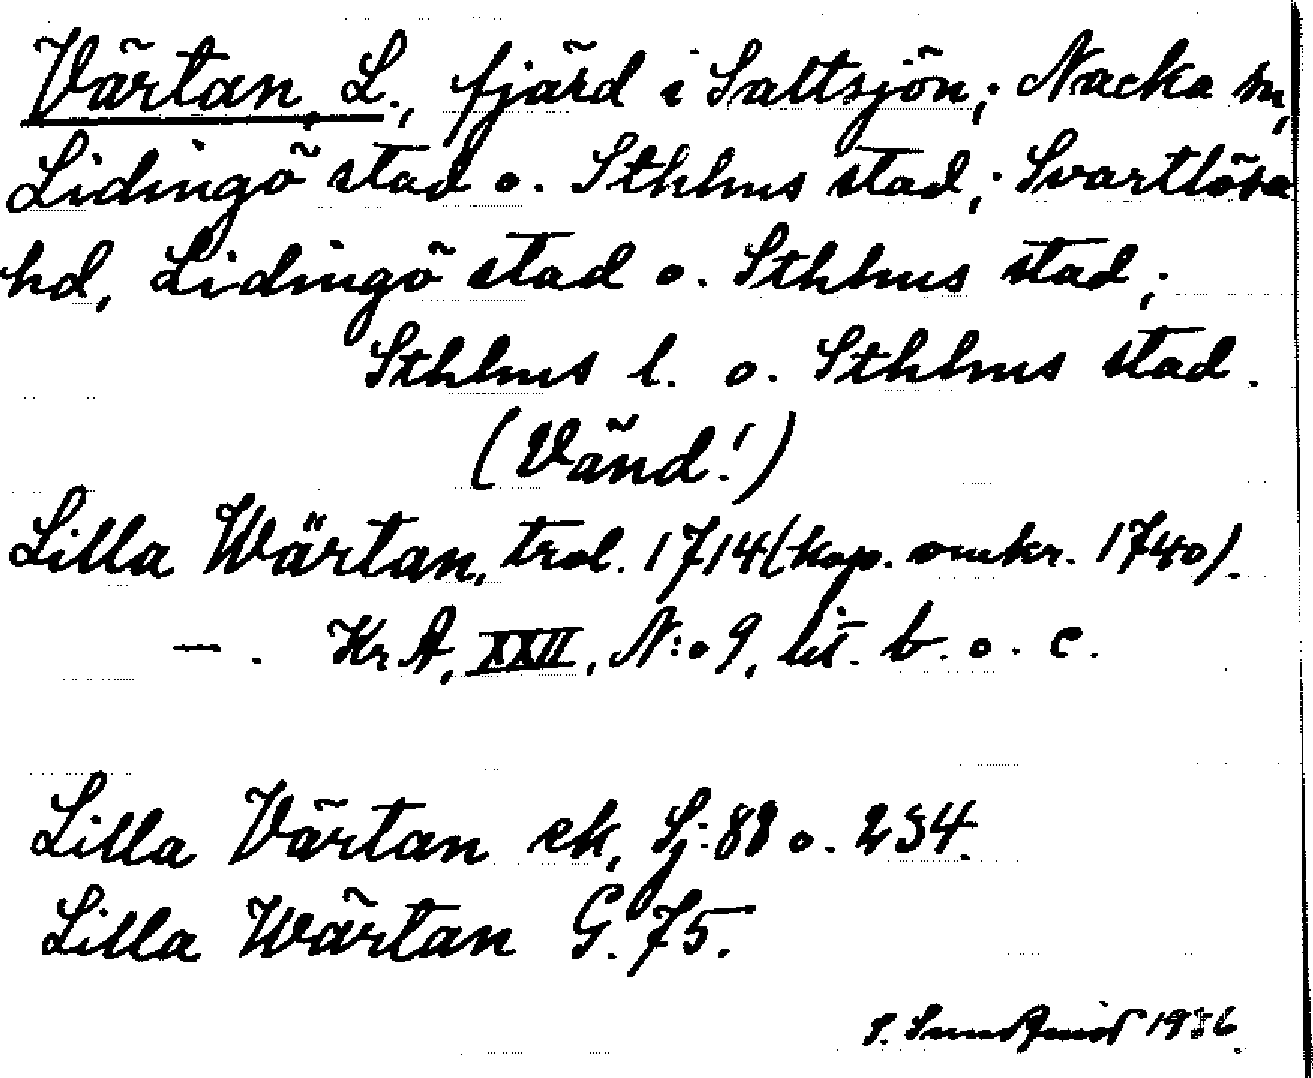 Värtan, L., fjärd i Saltsjön; Nacka sn,
Lidingö stad o. Sthlms stad; Svartlösa
hd, Lidingö stad o. Sthlms stad;
Sthlms l. o. Sthlms stad.
(Vänd!)
Lilla Wärtan, trol. 1714 (kop. omkr. 1740).
— . KrA, XXII, N:o 9, lit. b. o. c.
Lilla Värtan ek, Sj: 88 o. 234.
Lilla Wärtan G. 75.
1936.